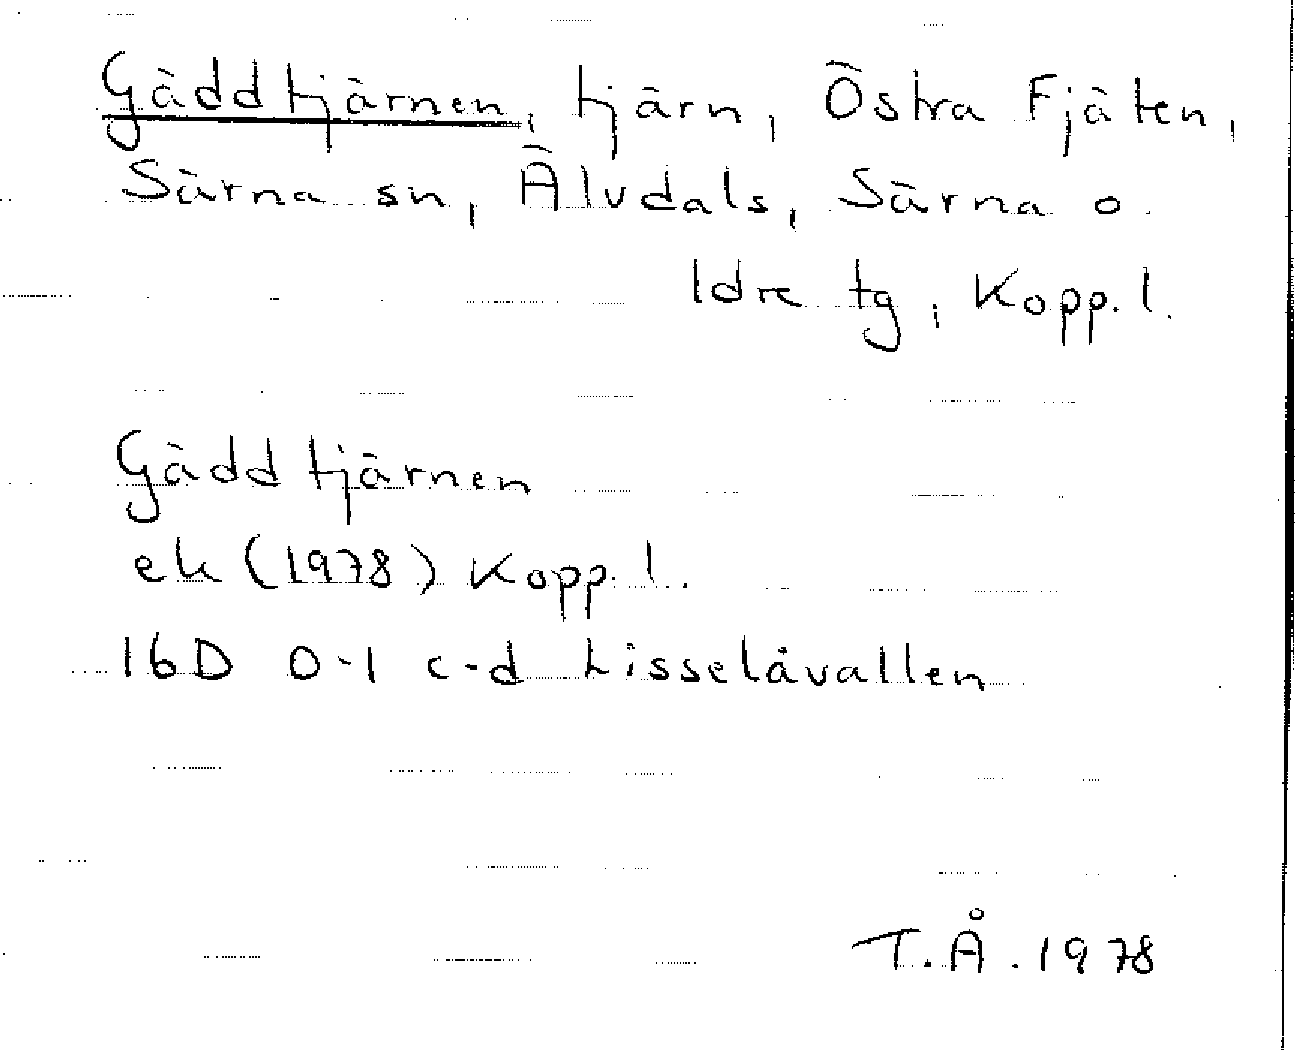 Gäddtjärnen, tjärn, Östra Fjäten,
Särna sn, Älvdals, Särna o.
Idre tg, Kopp. l.
Gäddtjärnen
ek (1978) Kopp. l.
16D 0-1 c-d Lisselåvallen
T.Å. 1978